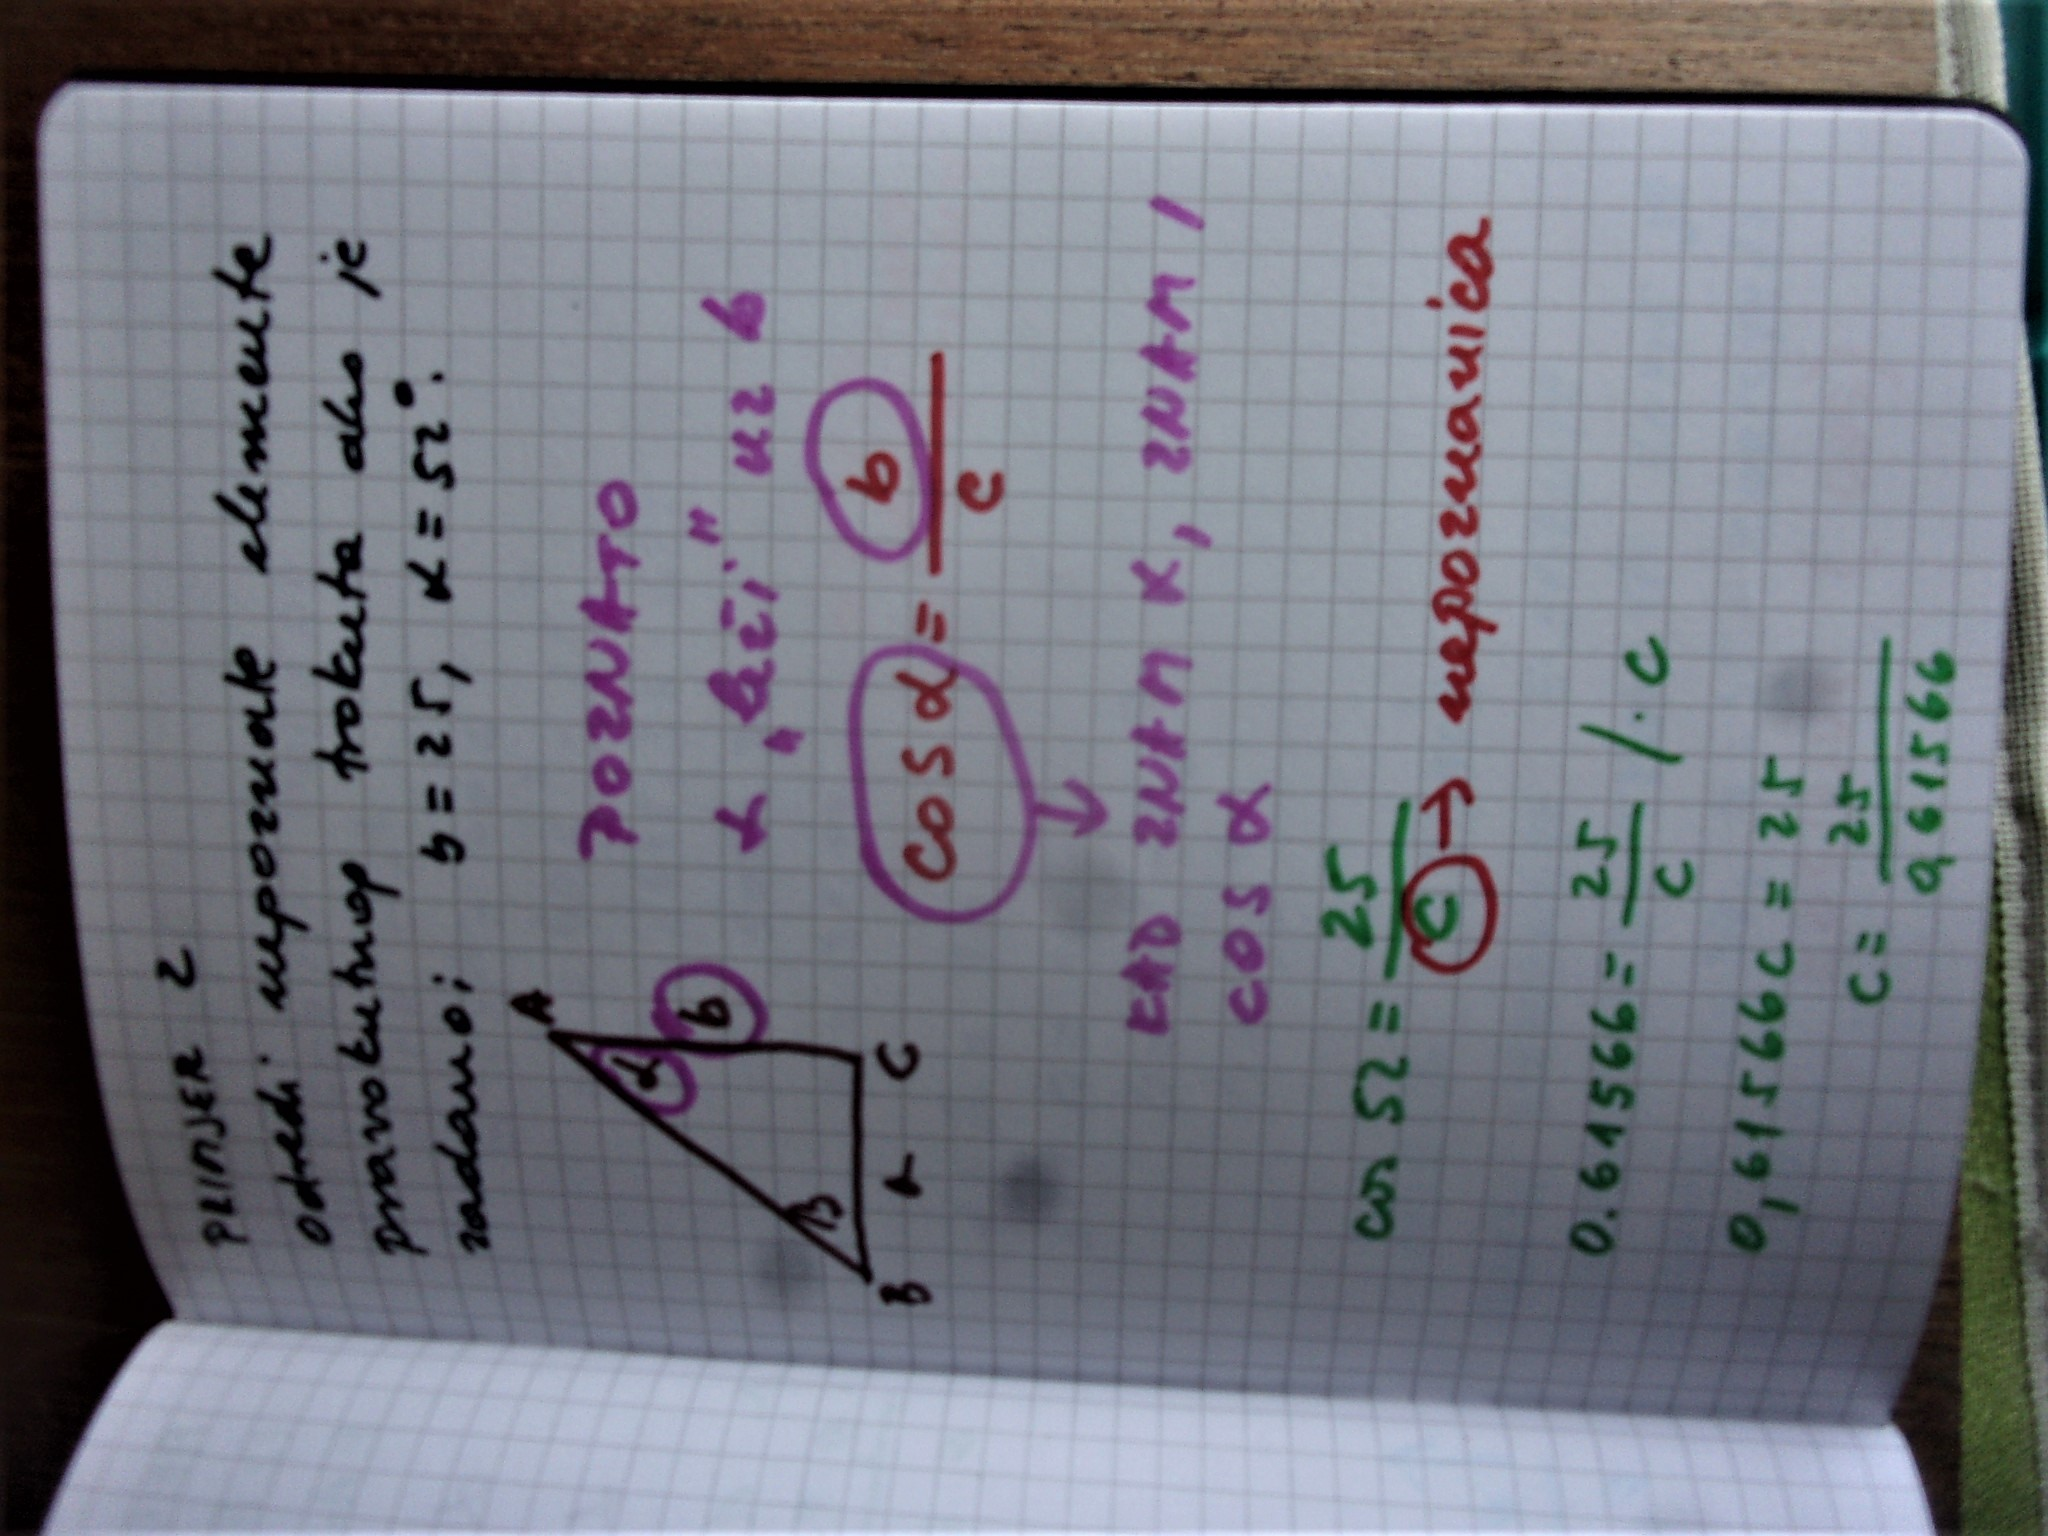 PRIMJER 2
odredi nepoznate elemente
pravokutnog trokuta ako je
zadano: b = 25, α = 52°.
A
α
b
β
B
a
C
POZNATO
α „leži" uz b
cos α = b
c
KAD ZNAM α, ZNAM I
COS α
cos 52 = 25
c → nepoznanica
0.61566 = 25 / · c
c
0,61566c = 25
c = 25
0,61566